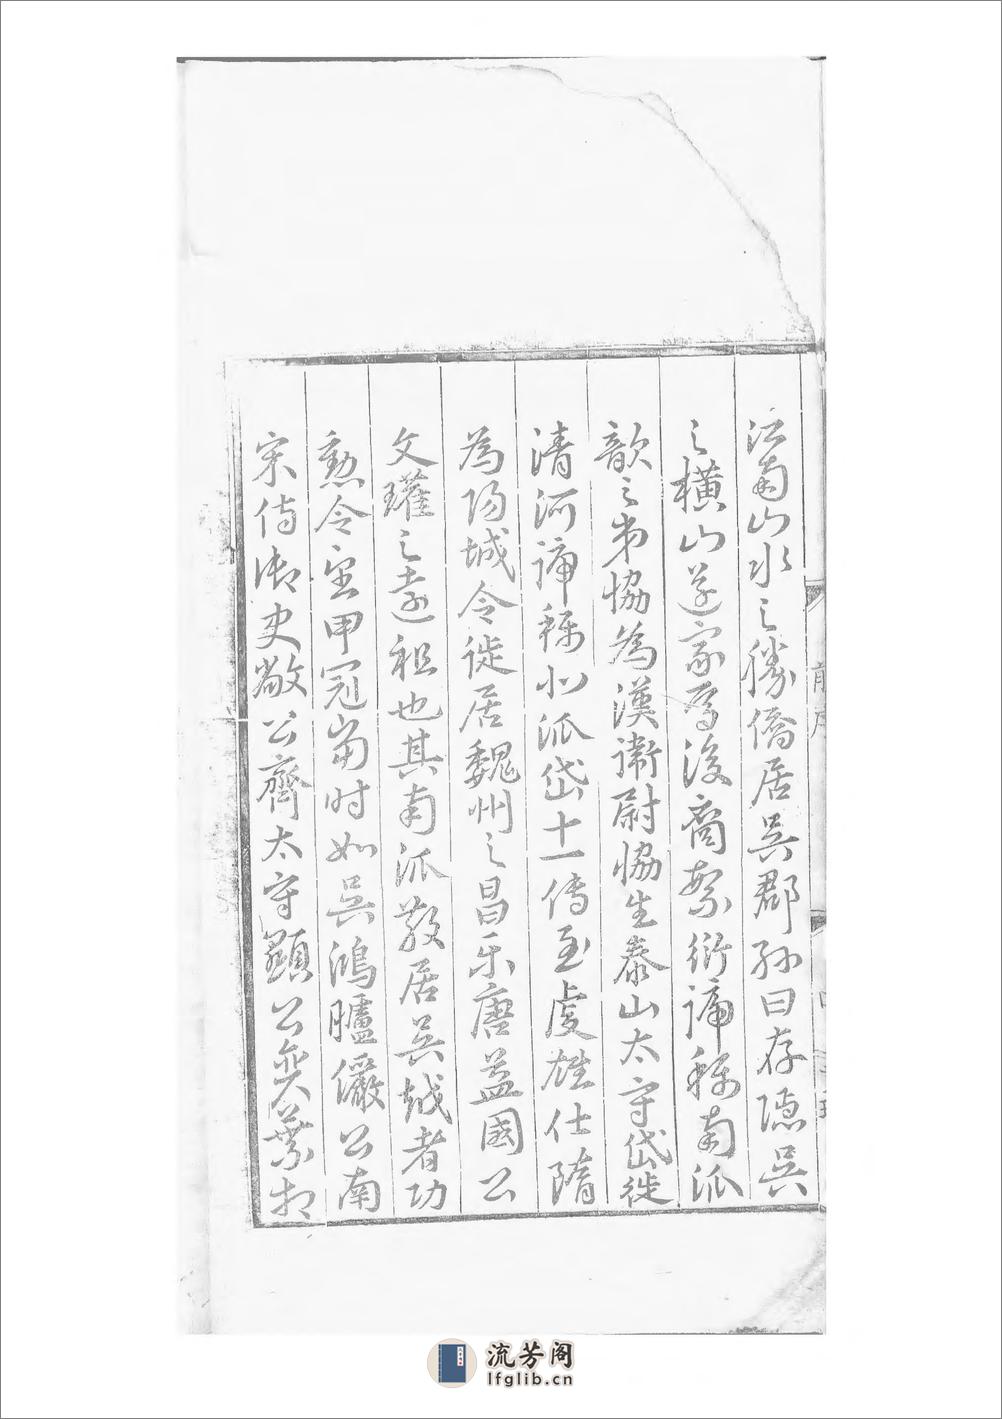 江南山水之勝僑居吳郡孫曰存隱吳
之橫山遂家焉後裔繁衍諦稱南派
歆之弟協為漢衛尉協生泰山太守岱徙
清河諦稱北派岱十一傳至虔雄仕隋
為陽城令徙居魏州之昌乐唐益國公
文瓘之遠祖也其南派散居吳越者功
勲令望甲冠當时如吳鴻臚儼公南
宋侍御史敞公齊太守顯公奕葉相
流芳阁
lfglib.cn